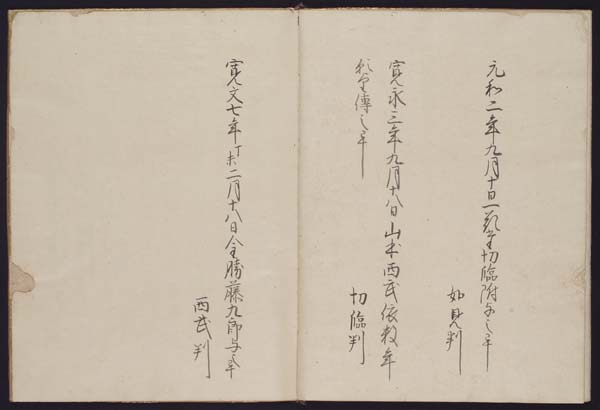 元和二年九月十日一
切臨附与之畢
如見判
寛永三年九月十八日山本西武依数年
傳之畢
切臨判
寛文七年丁未二月十八日令勝藤九郎与之畢
西武判